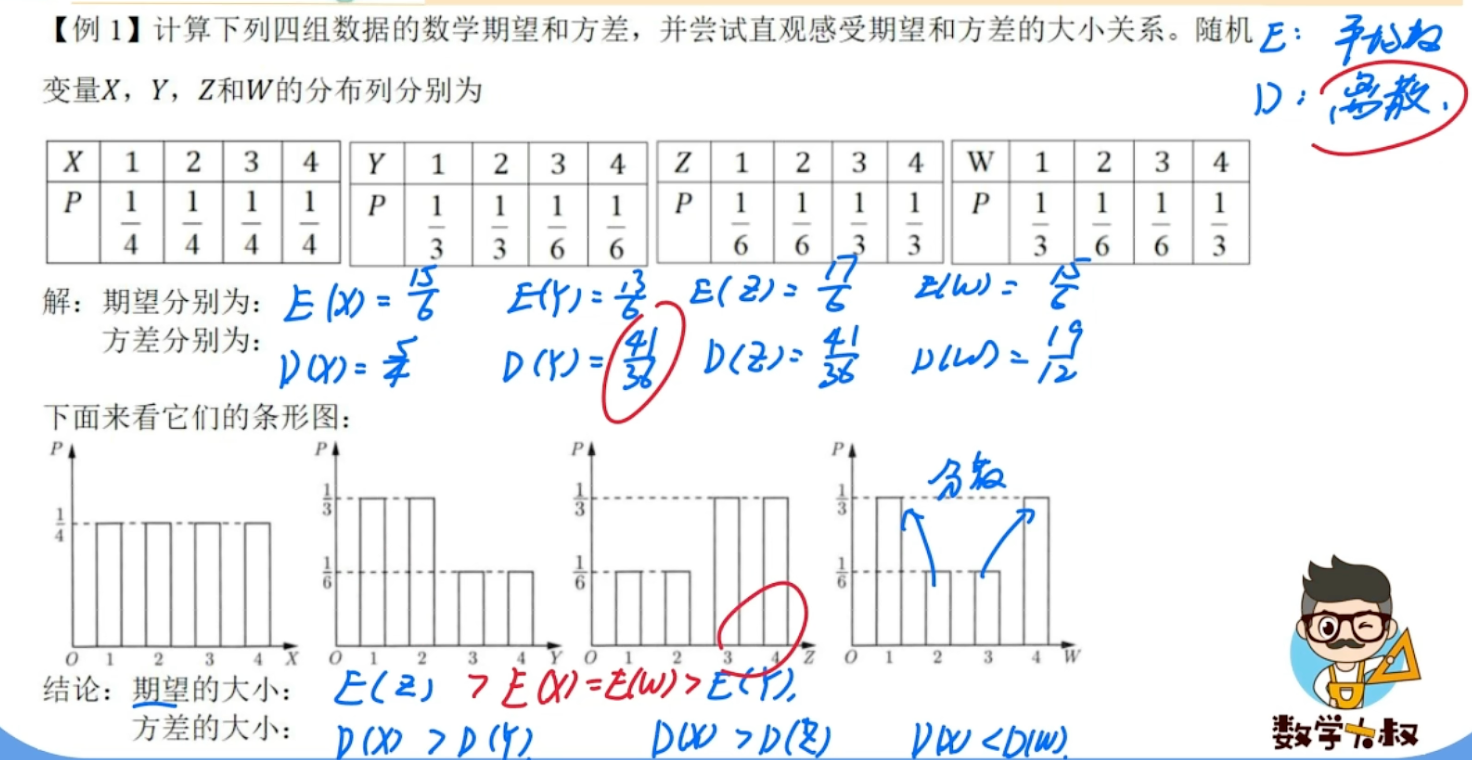 【例 1】计算下列四组数据的数学期望和方差，并尝试直观感受期望和方差的大小关系。随机
变量X，Y，Z和W的分布列分别为
E： 平均数
D：离散.
X 1 2 3 4
P 1/4 1/4 1/4 1/4
Y 1 2 3 4
P 1/3 1/3 1/6 1/6
Z 1 2 3 4
P 1/6 1/6 1/3 1/3
W 1 2 3 4
P 1/3 1/6 1/6 1/3
解：期望分别为：E(X)=15/6 E(Y)=13/6 E(Z)=17/6 E(W)=15/6
方差分别为：D(X)=5/4 D(Y)=41/36 D(Z)=41/36 D(W)=19/12
下面来看它们的条形图：
P 1/4 O 1 2 3 4 X
P 1/3 1/6 O 1 2 3 4 Y
P 1/3 1/6 O 1 2 3 4 Z
P 1/3 1/6 O 1 2 3 4 W
分散
结论：期望的大小：E(Z) > E(X)=E(W)>E(Y).
方差的大小：D(X) > D(Y) D(X) >D(Z) D(X) <D(W).
数学大叔